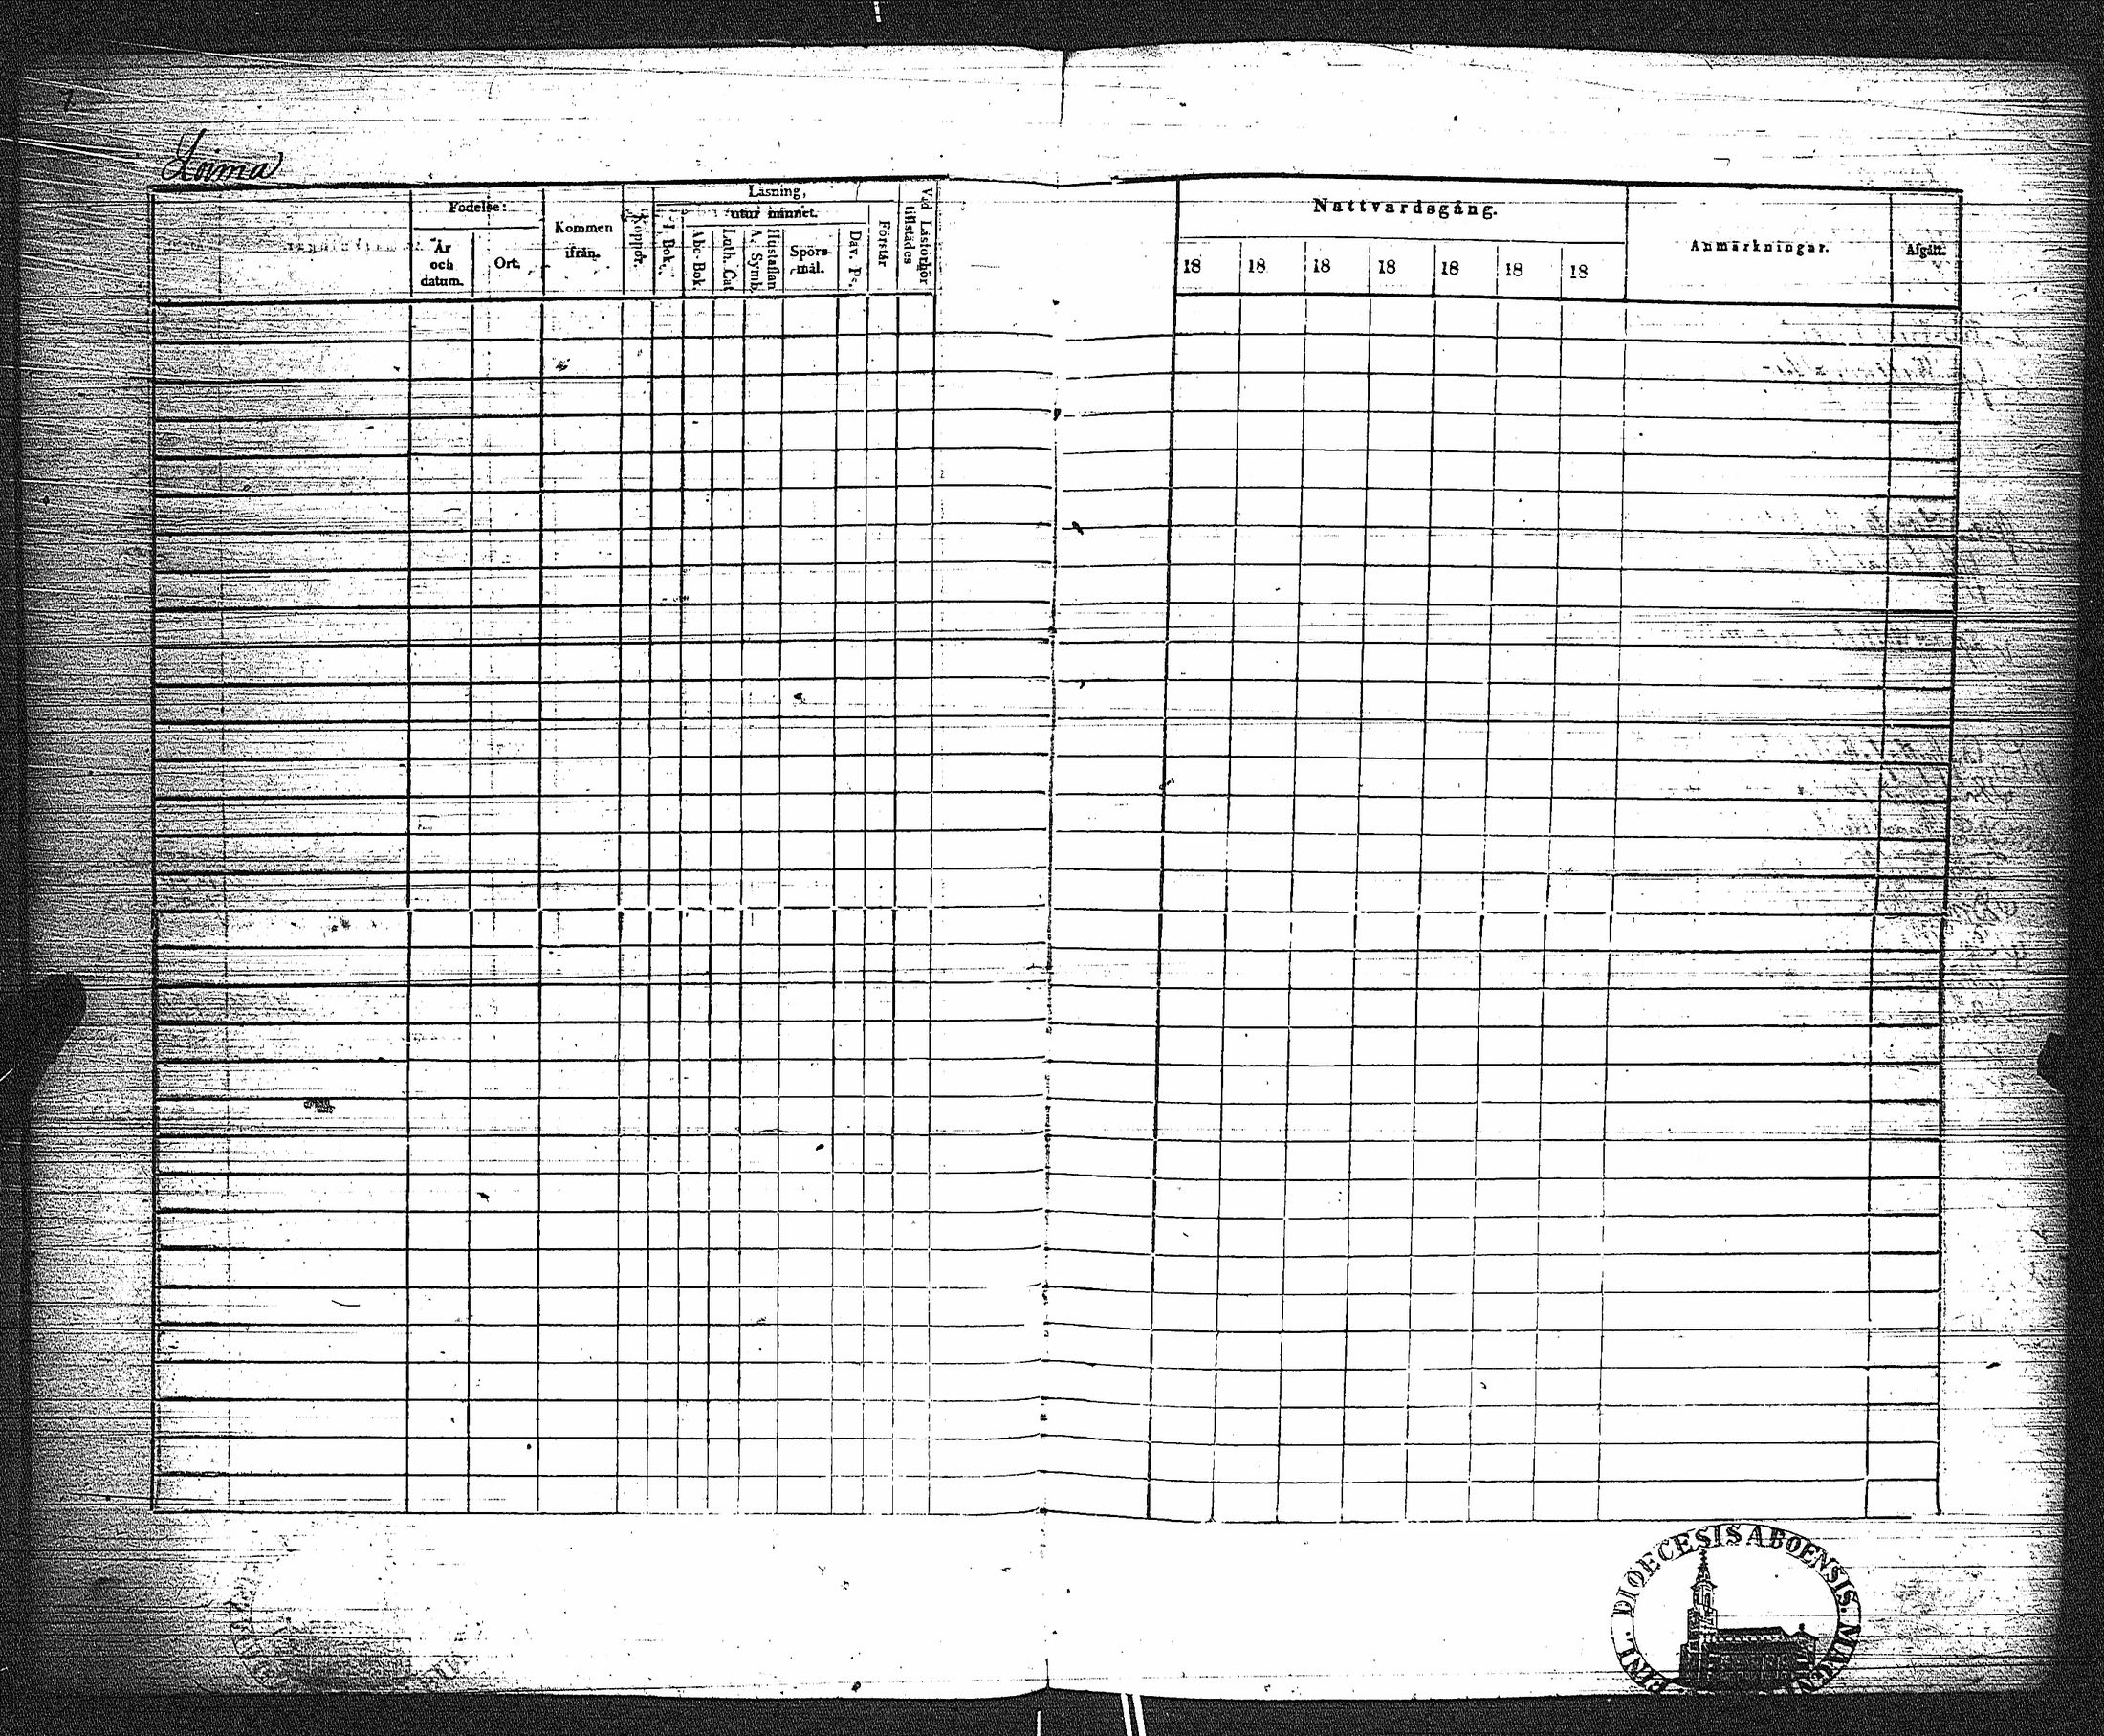 Loima
Födelse:
År
och
datum.
Ort.
Kommen
ifrån.
Koppor.
Läsning,
utur minnet.
I. Bok.
Abc-Bok.
Luth. Cat.
A. Symb.
Hustaflan
Spörs-
mål.
Dav. Ps.
Förstår
Vid Läsförhör
tillstädes
Nattvardsgång.
18 18 18 18 18 18 18
Anmärkningar.
Afgått.
DIOECESIS ABOENSIS.